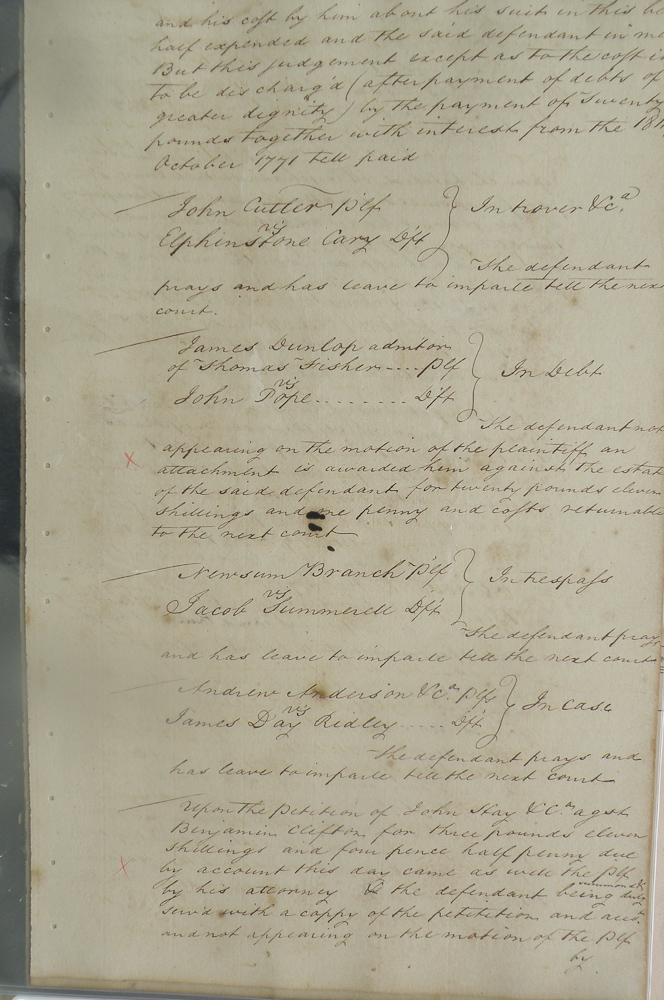 and his cost by him about his suit in this be
half expended and the said defendant in me
But this judgement except as to the cost is
to be discharg'd (after payment of debts of
greater dignity) by the payment of Twenty
pounds together with interest from the 18
October 1771 till paid
John Cutler Plf
vs
Elphinstone Cary Dft
In trover &c.a
The defendant
prays and has leave to imparle till the next
court.
James Dunlop admtor
of Thomas Fisher.... Plf
vs
John Pope......... Dft
In Debt
The defendant not
appearing on the motion of the plaintiff an
attachment is awarded him against the estat
of the said defendant for twenty pounds eleven
shillings and one penny and costs returnable
to the next court
Newsum Branch Plf
vs
Jacob Summerell Dft
In trespass
The defendant pray
and has leave to imparle till the next court
Andrew Anderson &c.a Plfs
vs
James Day Ridley..... Dft
In Case
The defendant prays and
has leave to imparle till the next court
Upon the Petition of John Hay &C.a agst
Benjamin Clifton for three pounds eleven
shillings and four pence half penny due
by account this day came as well the Plf
summond &
by his attorney & the defendant being duly
serv'd with a coppy of the petitition and acct.
and not appearing on the motion of the Plf
by